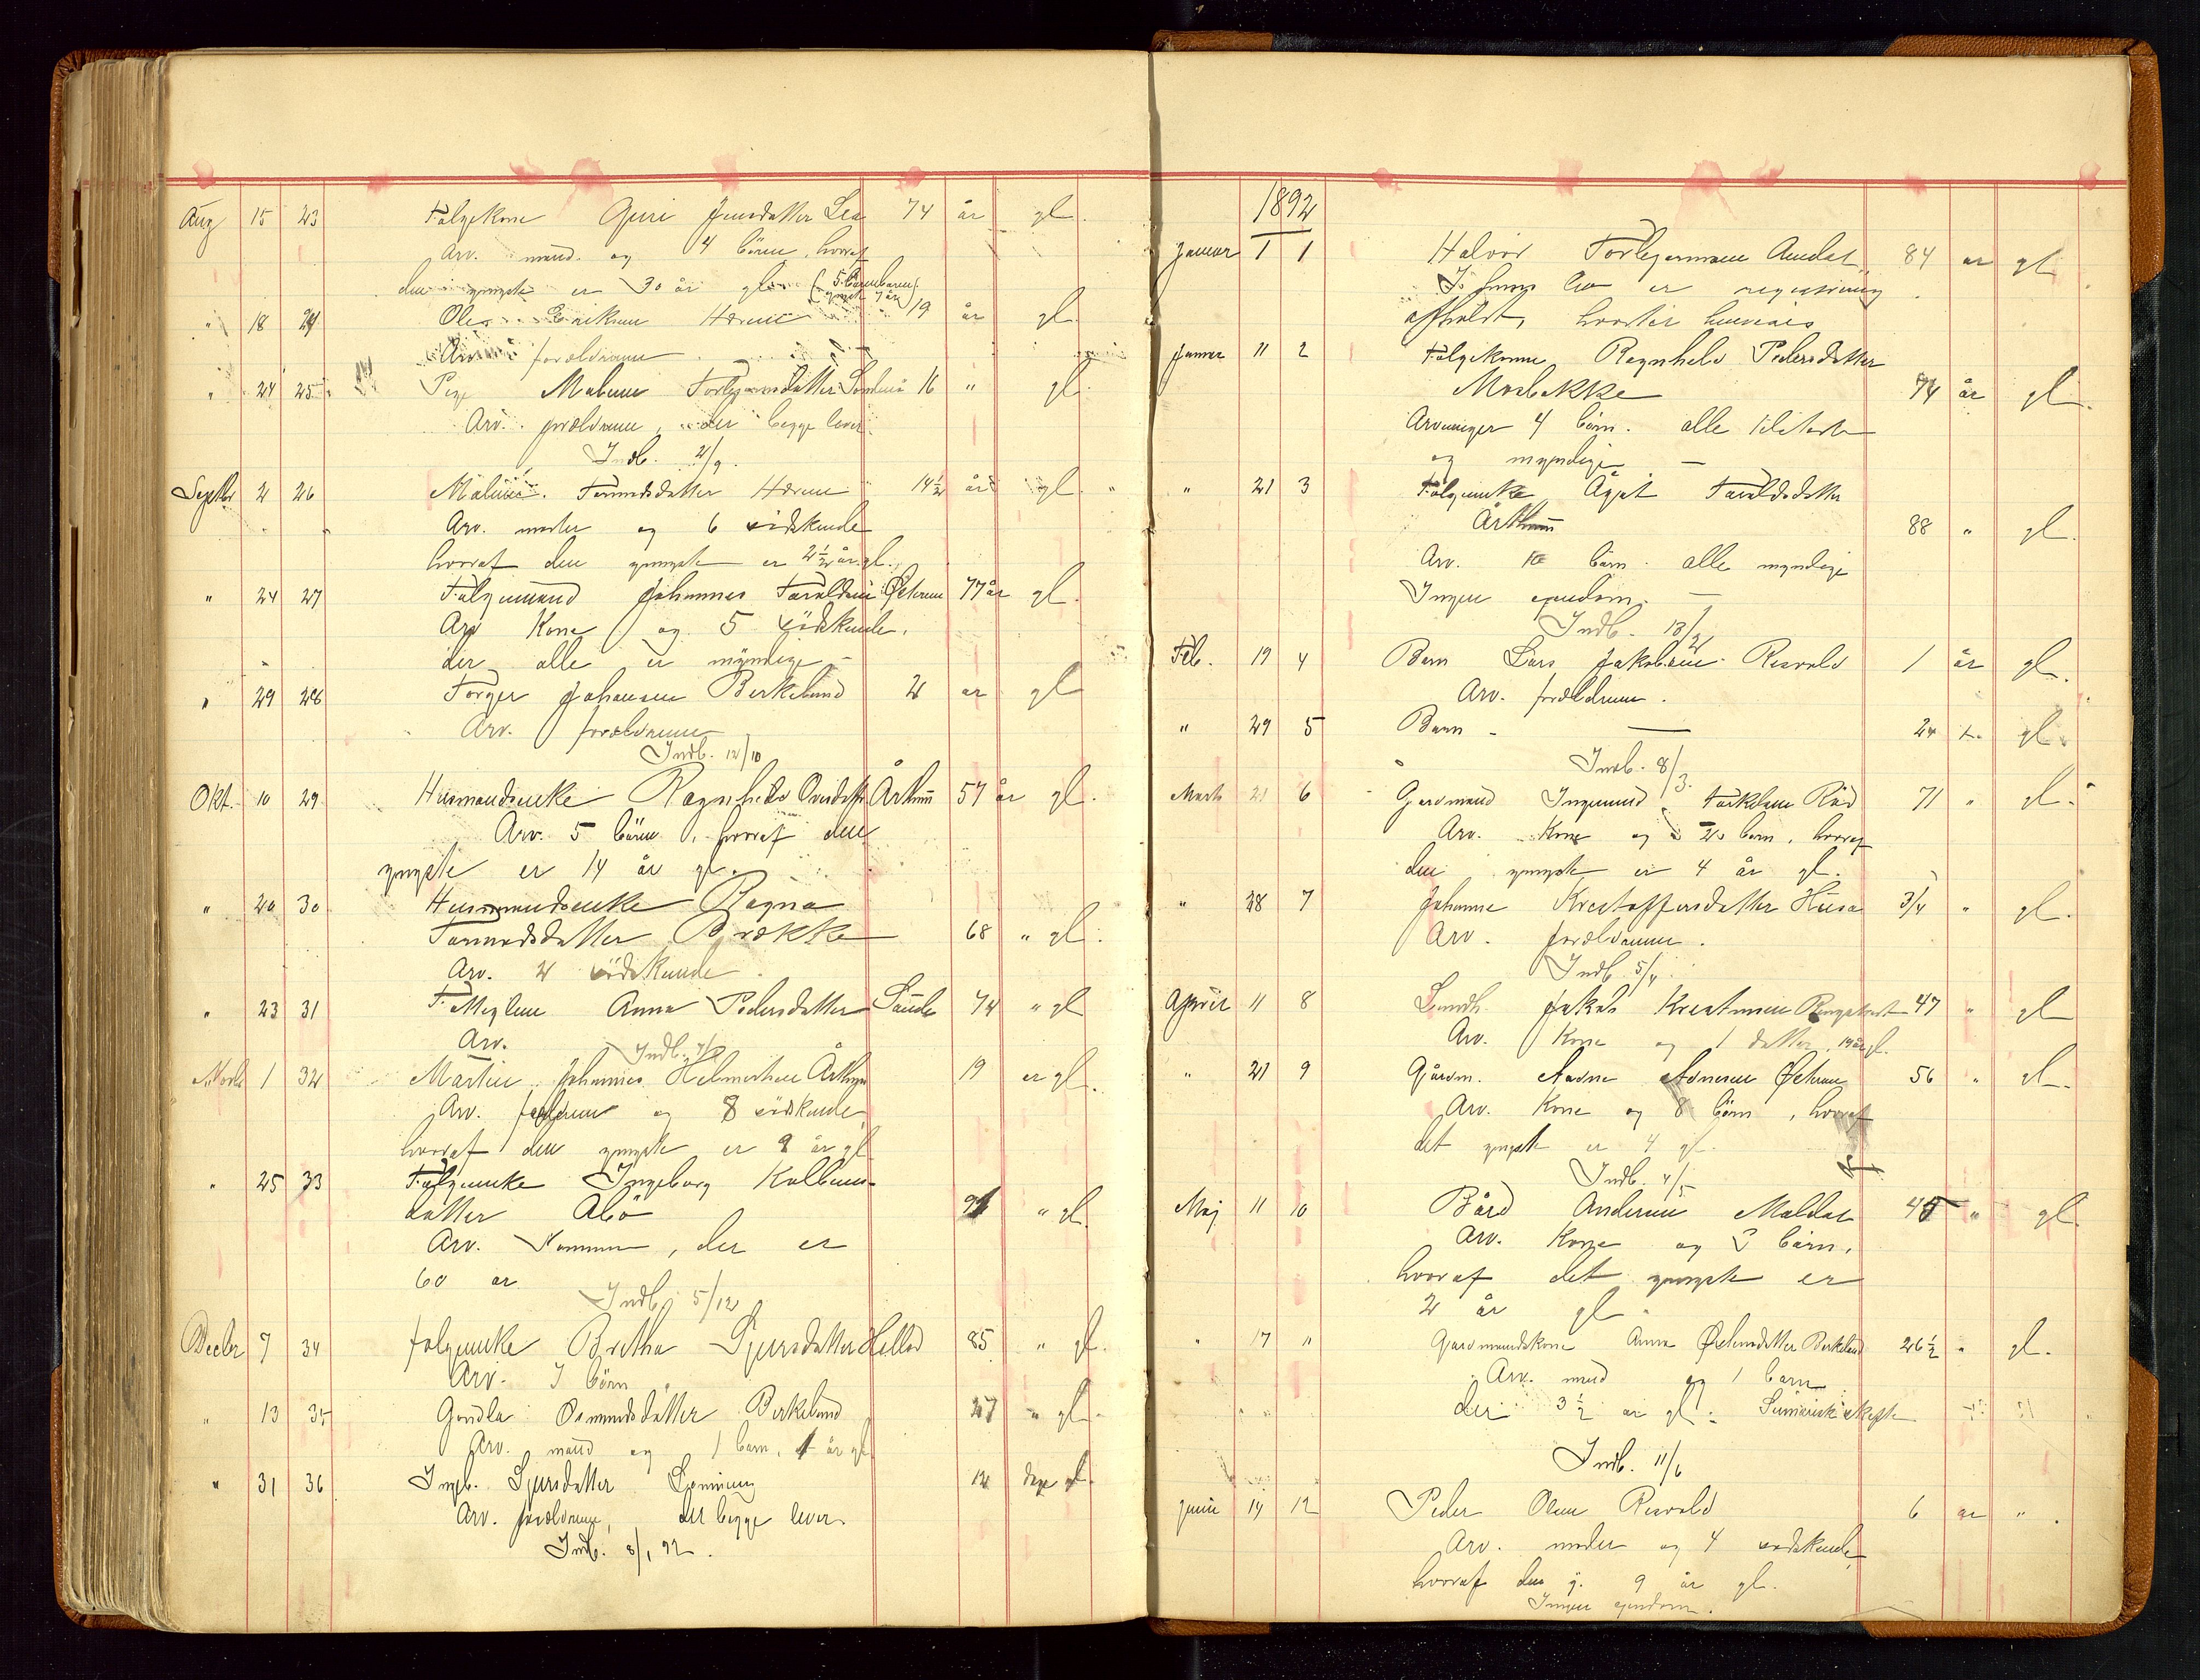 Aug 15 23 Følgekone Guri Jensdatter Lea 74 år gl.
Arv. mand og 4 børn, hvoraf
den yngste er 30 år gl. (5 Barnebørn
yngst 9 år)
" 18 24 Ole Eriksen 19 år gl.
Arv. forældrene
" 24 25 Pige Malene Torbjørnsdatter 16 " gl.
Arv. forældrene, der begge lever
Indb. 2/9.
Septbr 2 26 Maline Tormodsdatter 14½ år gl.
Arv. moder og 6 södskende
hvoraf den yngste er 2½ år gl.
" 24 27 Følgemand Johannes Taraldsen Østrem 77 år gl.
Arv Kone og 5 södskende,
der alle er myndige -
" 29 28 Torger Johansen Birkeland 2 år gl
Arv. forældrene
Indb. 12/10
Okt. 10 29 Husmandsenke Ragnhild Årthun 57 år gl.
Arv. 5 börn, hvoraf den
yngste er 14 år gl.
" 20 30 Husmandsenke Ragna
Tormodsdatter Brække 68 " gl.
Arv. 2 södskende.
" 23 31 Anna Pedersdatter Sande 74 " gl
Arv. Indb.
1 32 Martin Johannes Helmichsen Årthun 19 år gl.
Arv. forældrene og 8 södskende
hvoraf den yngste er 9 år gl
" 25 33 Følgeenke Ingeborg Kolbens-
datter Abö 91 " gl.
Arv. Sønnen, der er
60 år
Indb. 5/12
Decbr 7 34 følgeenke Bertha Sjursdatter Helland 85 " gl.
Arv. 7 börn
" 13 35 Gondla Osmundsdatter Birkeland 27 " gl.
Arv. mand og 1 barn, 1 år gl
" 31 36 Ingb. Sjursdatter Lonning 12 dage gl.
Arv. forældrene, der begge lever.
Indb. 8/1 92.
1892
Januar 1 1 Halvor Torbjørnsen Amdal 84 år gl
er registrering
afholdt, hvortil henvises
Januar 11 2 Følgekone Ragnhild Pedersdatter
Mosbække 74 år gl.
Arvinger 4 börn. alle tilstede
og myndige -
" 21 3 Følgeenke Ågot Taraldsdatter
Årthun 88 " gl.
Arv. börn. alle myndige
Ingen ejendom. -
Indb. 13/2
Feb. 19 4 Barn Lars Jakobsen Risvold 1 år gl.
Arv. forældrene.
" 29 5 Barn - — 24 t. gl.
Indb. 8/3.
Marts 21 6 Gardmand Ingemund Torkelsen Rød 71 " gl.
Arv. Kone og børn, hvoraf
den yngste er 4 år gl.
" 28 7 Johanne Kristoffersdatter Husa 3/4 " gl.
Arv. forældrene.
Indb 5/4.
April 11 8 Jakob Kristensen 47 " gl
Arv. Kone og 1 datter, år gl.
" 21 9 Gårdm. Aadne Adnesen Østrem 56 " gl.
Arv. Kone og 8 börn, hvoraf
det yngste er 4 gl.
Indb. 4/5
Maj 11 10 Bård Andersen Maldal 45 " gl.
Arv. Kone og börn,
hvoraf det yngste er
2 år gl.
" 17 11 Gardmandskone Anna Østensdatter Birkeland 26½ " gl.
Arv. mand og 1 barn
der 3½ år gl. Sumarisk skifte
Indb. 11/6
Juni 14 12 Peder Olsen Risvold 6 år " .
Arv. moder og 4 södskende,
hvoraf den y. 9 år gl.
Ingen ejendom.